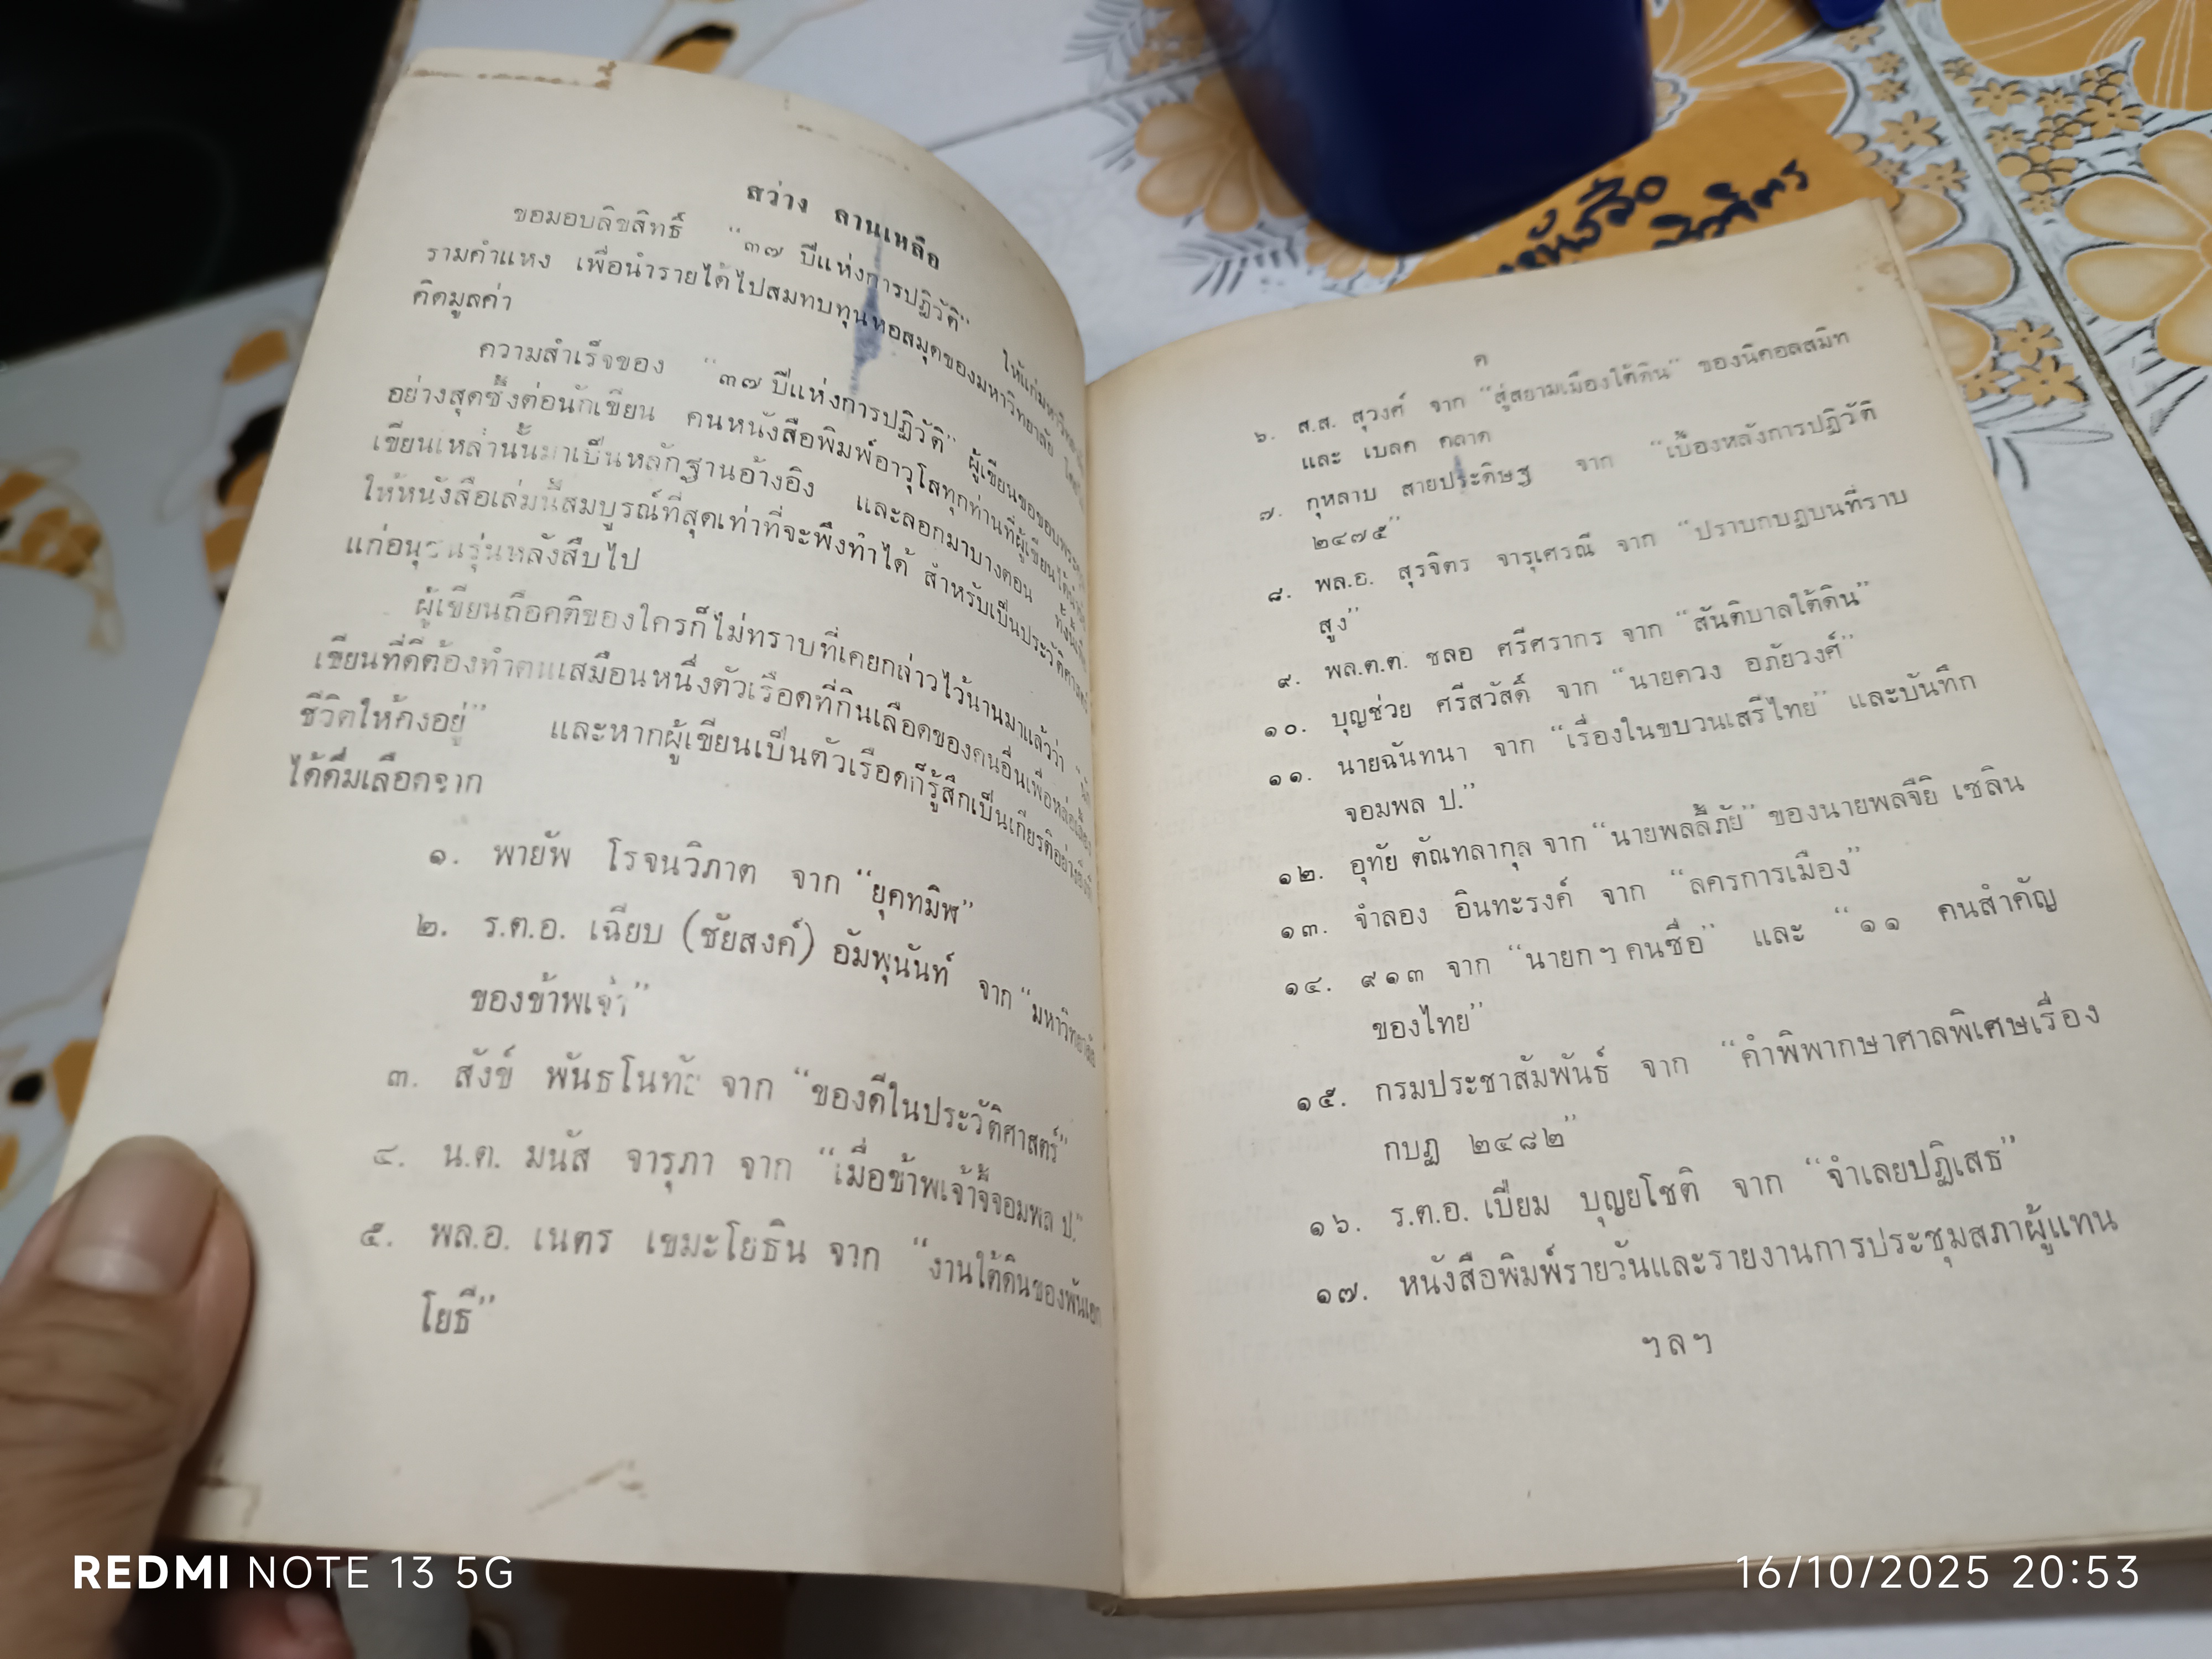 สว่าง ลานเหลือ
ขอมอบลิขสิทธิ์ “๓๗ ปีแห่งการปฏิวัติ” ให้แก่มหาวิทยาลัย
รามคำแหง เพื่อนำรายได้ไปสมทบทุนหอสมุดของมหาวิทยาลัย
คิดมูลค่า
ความสำเร็จของ “๓๗ ปีแห่งการปฏิวัติ” ผู้เขียนขอขอบพระคุณ
อย่างสุดซึ้งต่อนักเขียน คนหนังสือพิมพ์อาวุโสทุกท่านที่ผู้เขียนได้นำข้อ
เขียนเหล่านั้นมาเป็นหลักฐานอ้างอิง และลอกมาบางตอน ทั้งนี้เพื่อ
ให้หนังสือเล่มนี้สมบูรณ์ที่สุดเท่าที่จะพึงทำได้ สำหรับเป็นประวัติศาสตร์
แก่อนุชนรุ่นหลังสืบไป
ผู้เขียนถือคติของใครก็ไม่ทราบที่เคยกล่าวไว้นานมาแล้วว่า “นัก
เขียนที่ดีต้องทำตนเสมือนหนึ่งตัวเรือดที่กินเลือดของคนอื่นเพื่อหล่อเลี้ยง
ชีวิตให้คงอยู่” และหากผู้เขียนเป็นตัวเรือดก็รู้สึกเป็นเกียรติอย่างยิ่งที่
ได้ดื่มเลือดจาก
๑. พายัพ โรจนวิภาต จาก “ยุคทมิฬ”
๒. ร.ต.อ. เฉียบ (ชัยสงค์) อัมพุนันท์ จาก “มหาวิทยาลัย
ของข้าพเจ้า”
๓. สังข์ พันธโนทัย จาก “ของดีในประวัติศาสตร์”
๔. น.ต. มนัส จารุภา จาก “เมื่อข้าพเจ้าจี้จอมพล ป.”
๕. พล.อ. เนตร เขมะโยธิน จาก “งานใต้ดินของพันเอก
โยธี”
ค
๖. ส.ส. สุวงศ์ จาก “สู่สยามเมืองใต้ดิน” ของนิคอลสมิท
และ เบลค คลาค
๗. กุหลาบ สายประดิษฐ จาก “เบื้องหลังการปฏิวัติ
๒๔๗๕”
๘. พล.อ. สุรจิตร จารุเศรณี จาก “ปราบกบฏบนที่ราบ
สูง”
๙. พล.ต.ต. ชลอ ศรีศรากร จาก “สันติบาลใต้ดิน”
๑๐. บุญช่วย ศรีสวัสดิ์ จาก “นายควง อภัยวงศ์”
๑๑. นายฉันทนา จาก “เรื่องในขบวนเสรีไทย” และบันทึก
จอมพล ป.”
๑๒. อุทัย ตัณฑลากุล จาก “นายพลลี้ภัย” ของนายพลจียิ เซลิน
๑๓. จำลอง อินทะรงค์ จาก “ลครการเมือง”
๑๔. ๙๑๓ จาก “นายกฯ คนซื่อ” และ “๑๑ คนสำคัญ
ของไทย”
๑๕. กรมประชาสัมพันธ์ จาก “คำพิพากษาศาลพิเศษเรื่อง
กบฏ ๒๔๘๒”
๑๖. ร.ต.อ. เปี่ยม บุญยโชติ จาก “จำเลยปฏิเสธ”
๑๗. หนังสือพิมพ์รายวันและรายงานการประชุมสภาผู้แทน
ฯลฯ
REDMI NOTE 13 5G
16/10/2025 20:53